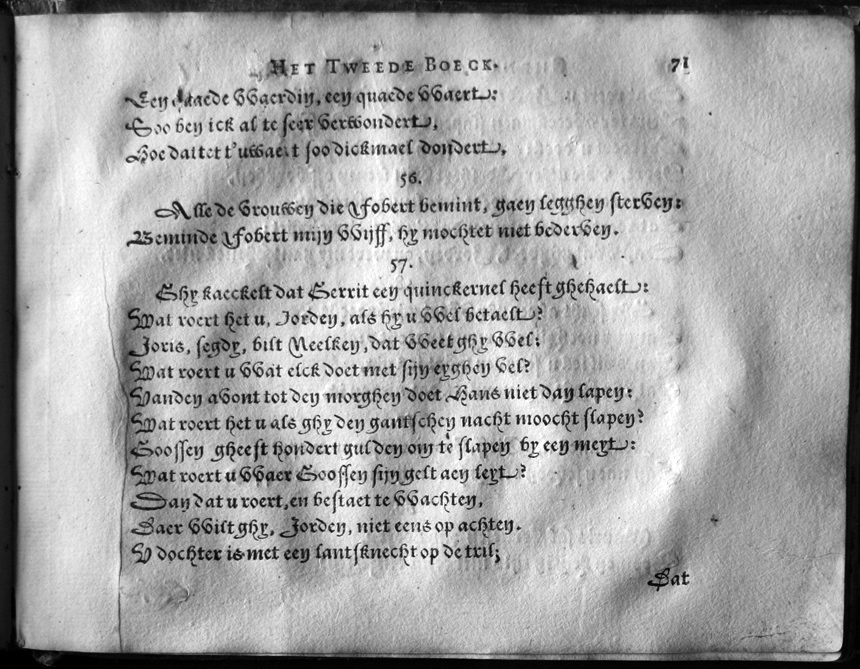 HET TWEEDE BOECK. 71
Een quaede VVaerdin, een quaede VVaert:
Soo ben ick al te seer verwondert,
Hoe dattet t'uwaert soo dickmael dondert,
56.
Alle de vrouwen die Fobert bemint, gaen legghen sterven:
Beminde Fobert mijn VVijff, hy mochtet niet bederven.
57.
Ghy kaeckelt dat Gerrit een quinckernel heeft ghehaelt:
Wat roert het u, Jorden, als hy u VVel betaelt?
Joris, segdy, vilt Neelken, dat VVeet ghy VVel:
Wat roert u VVat elck doet met sijn eyghen vel?
Vanden avont tot den morghen doet Hans niet dan lapen:
Wat roert het u als ghy den gantschen nacht moocht slapen?
Goossen gheeft hondert gulden om te slapen by een meyt:
Wat roert u VVaer Goossen sijn gelt aen leyt?
Dan dat u roert, en bestaet te VVachten,
Daer VVilt ghy, Jorden, niet eens op achten.
V dochter is met een lantsknecht op de tril;
Dat